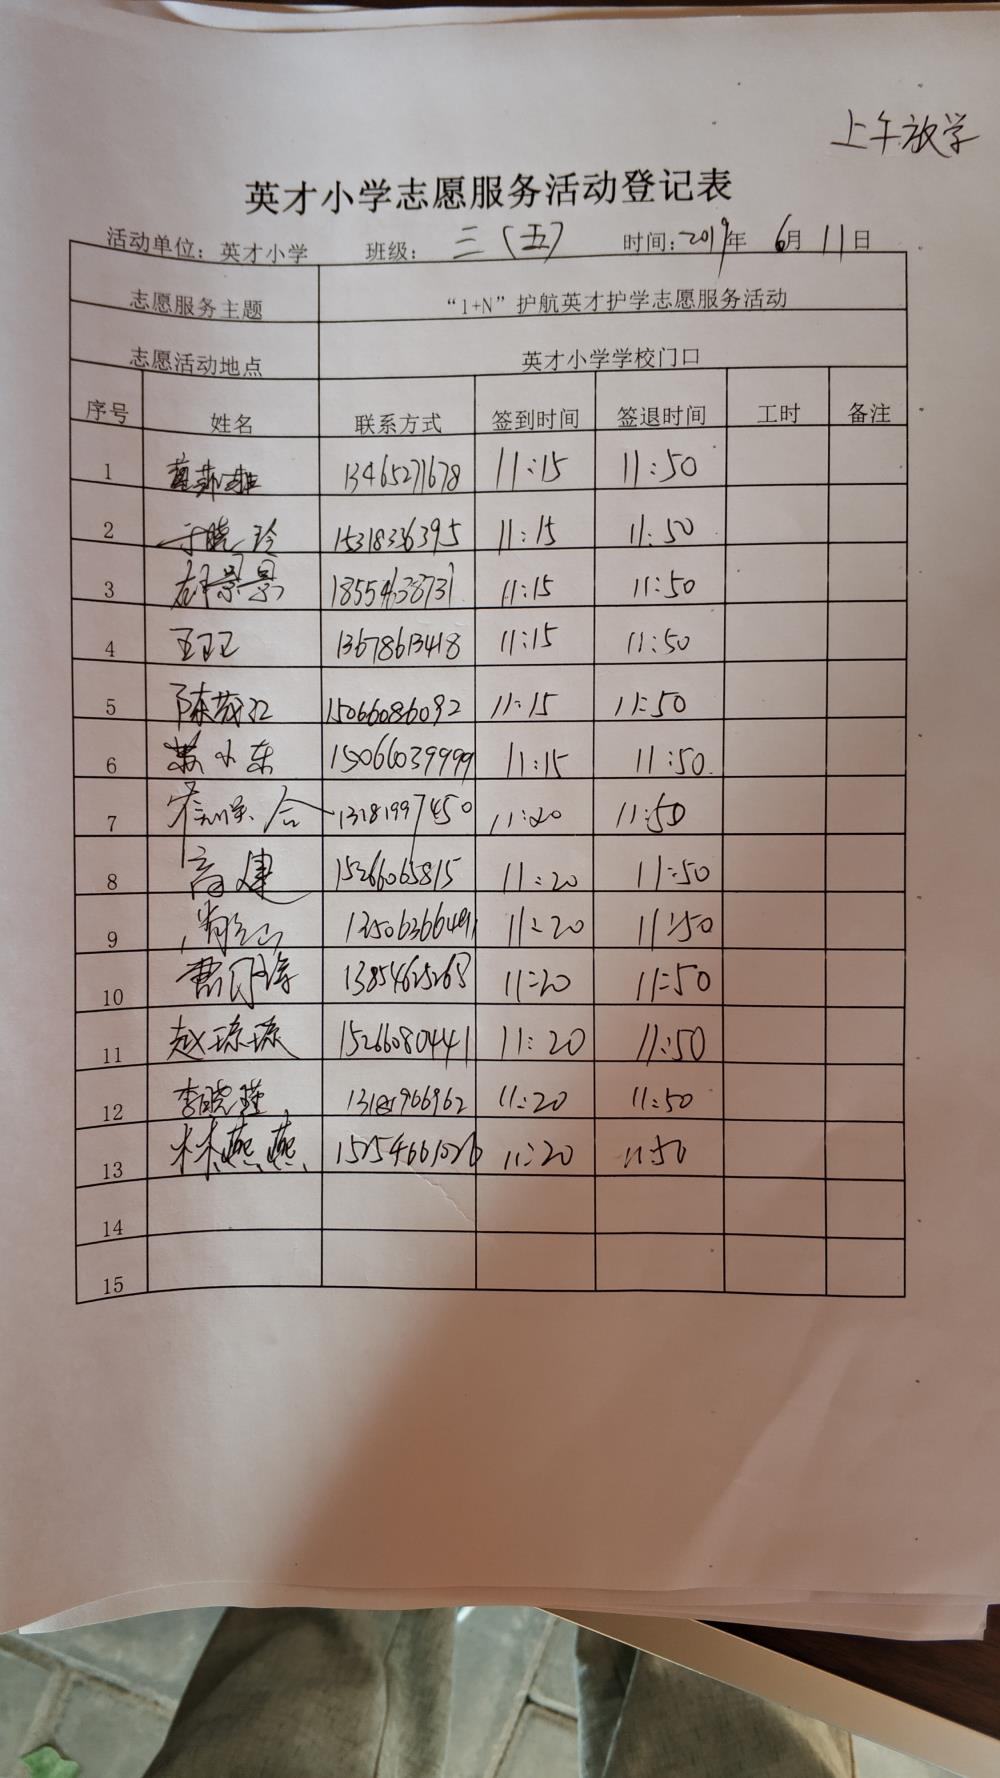 上午放学
英才小学志愿服务活动登记表
活动单位：英才小学 班级：三（五） 时间：2019年 6月 11日
志愿服务主题 “1+N”护航英才护学志愿服务活动
志愿活动地点 英才小学学校门口
序号 姓名 联系方式 签到时间 签退时间 工时 备注
1 13465271678 11:15 11:50
2 于晓玲 1531836395 11:15 11:50
3 胡景景 18554638731 11:15 11:50
4 王卫卫 13678613418 11:15 11:50
5 陈茂江 15066086092 11:15 11:50
6 苏小东 15066039999 11:15 11:50
7 13181997450 11:20 11:50
8 高建 15266065815 11:20 11:50
9 11:20 11:50
10 13854625265 11:20 11:50
11 赵琼琼 15266080441 11:20 11:50
12 李晓瑾 11:20 11:50
13 林燕燕 15254661026 11:20 11:50
14
15